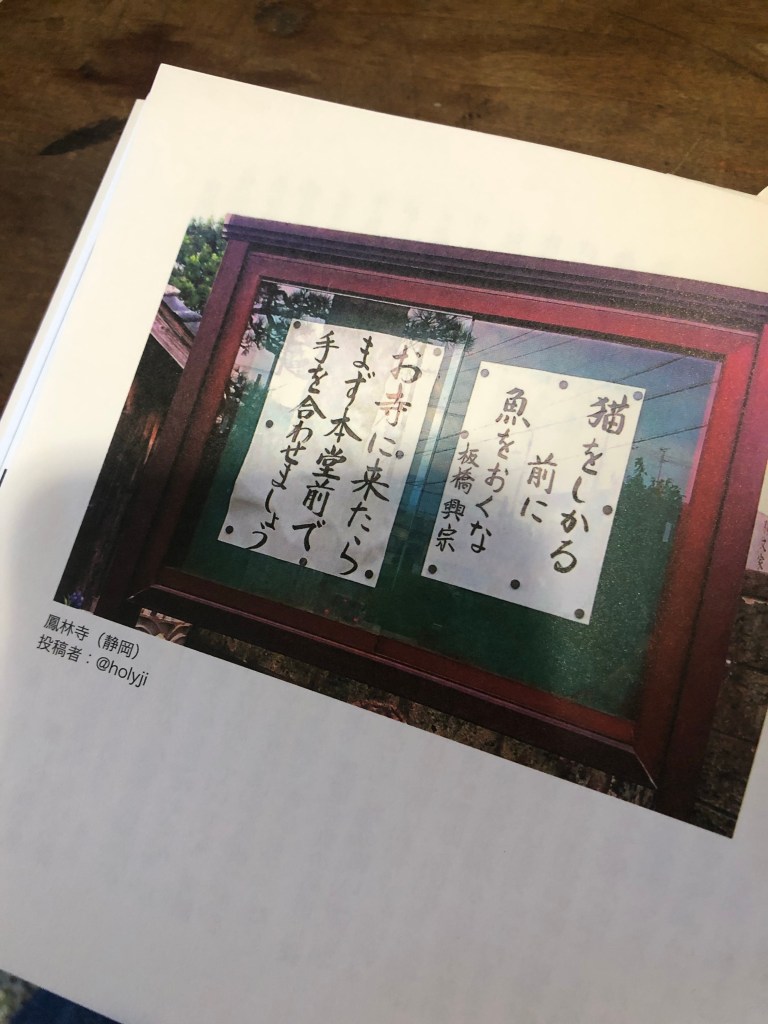 猫をしかる
前に
魚をおくな
板橋 興宗
お寺に来たら
まず本堂前で
手を合わせましょう
鳳林寺（静岡）
投稿者：@holyji